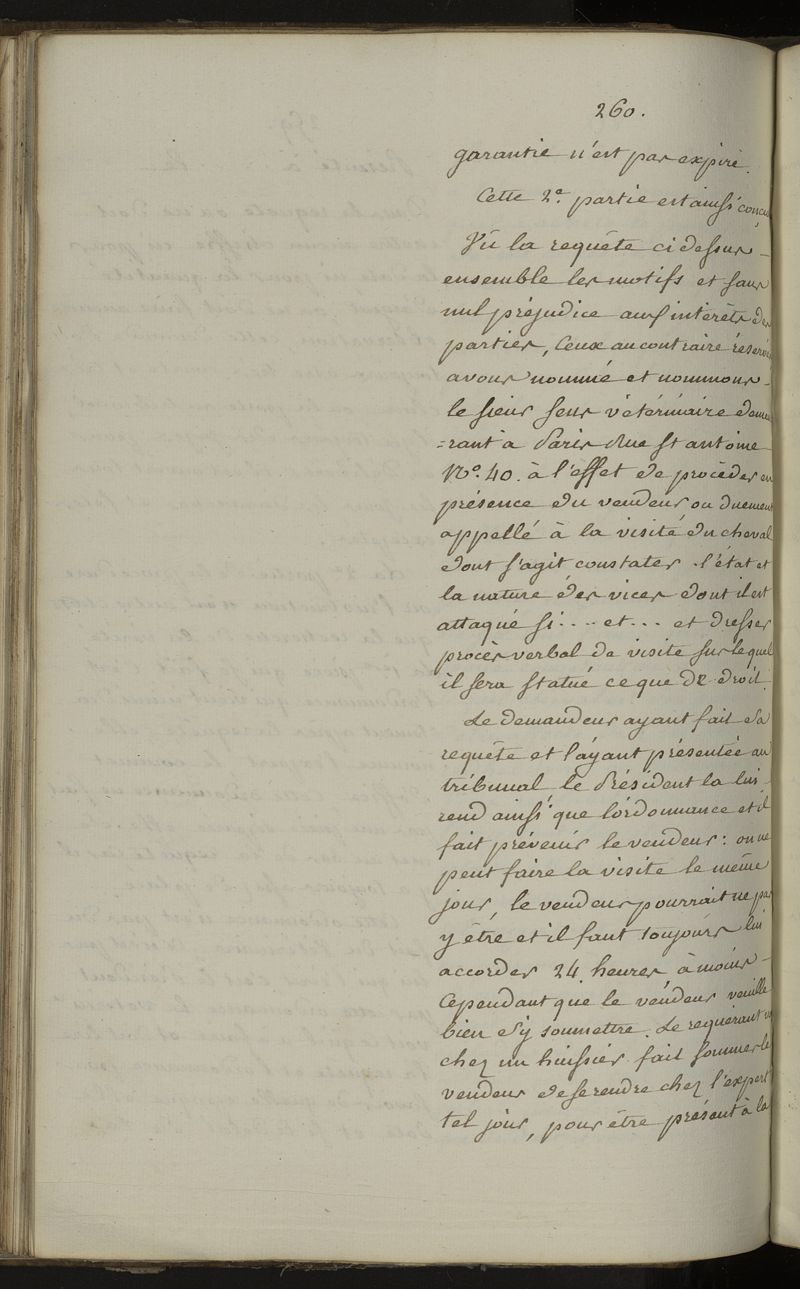 260.
garantie n'est pas expiré.
Cette 2e. partie est ainsi conçue
Vû la requête ci dessus
ensemble les motifs et sans
nul préjudice aux intérêts des
parties, ceux au contraire réservés
avons nommé et nommons
le sieur vétérinaire demeu
=rant à Paris Rue St antoine
No. 40. à l'effet de procéder en
présence du vendeur ou duement
appellé à la visite du cheval
dont s'agit constater l'état et
la nature des vices dont il est
attaqué si .... et ... et dresser
procès verbal de visite sur lequel
il sera statué ce que de droit.
Le demandeur ayant fait sa
requête et l'ayant présentée au
tribunal, le Président la lui
rend ainsi que l'ordonnance et il
fait prévenir le vendeur : on ne
peut faire la visite le même
jour, le vendeur pourrait ne pas
y être et il faut toujours lui
accorder 24 heures, à moins
cependant que le vendeur veuille
bien s'y soumettre. Le requérant va
chez un huissier fait sommer le
vendeur de se rendre chez l'expert
tel jour, pour être présent à la